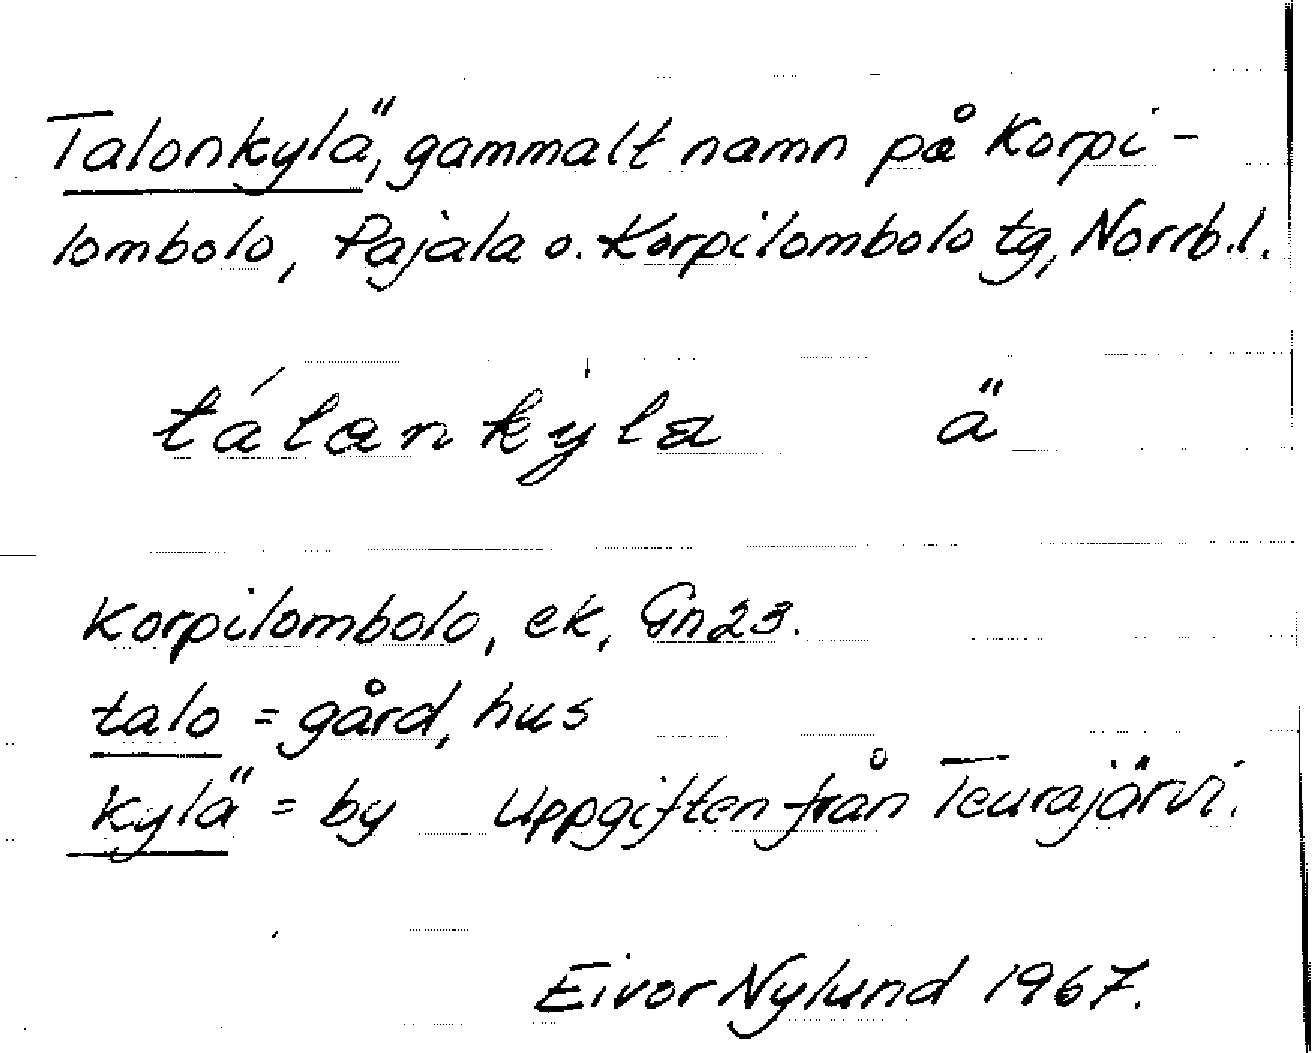 Talonkylä, gammalt namn på Korpi-
lombolo, Pajala o. Korpilombolo tg, Norrb.l.
tálankỳla ä
Korpilombolo, ek, Gn23.
talo = gård, hus
kylä = by Uppgiften från Teurajärvi.
Eivor Nylund 1967.